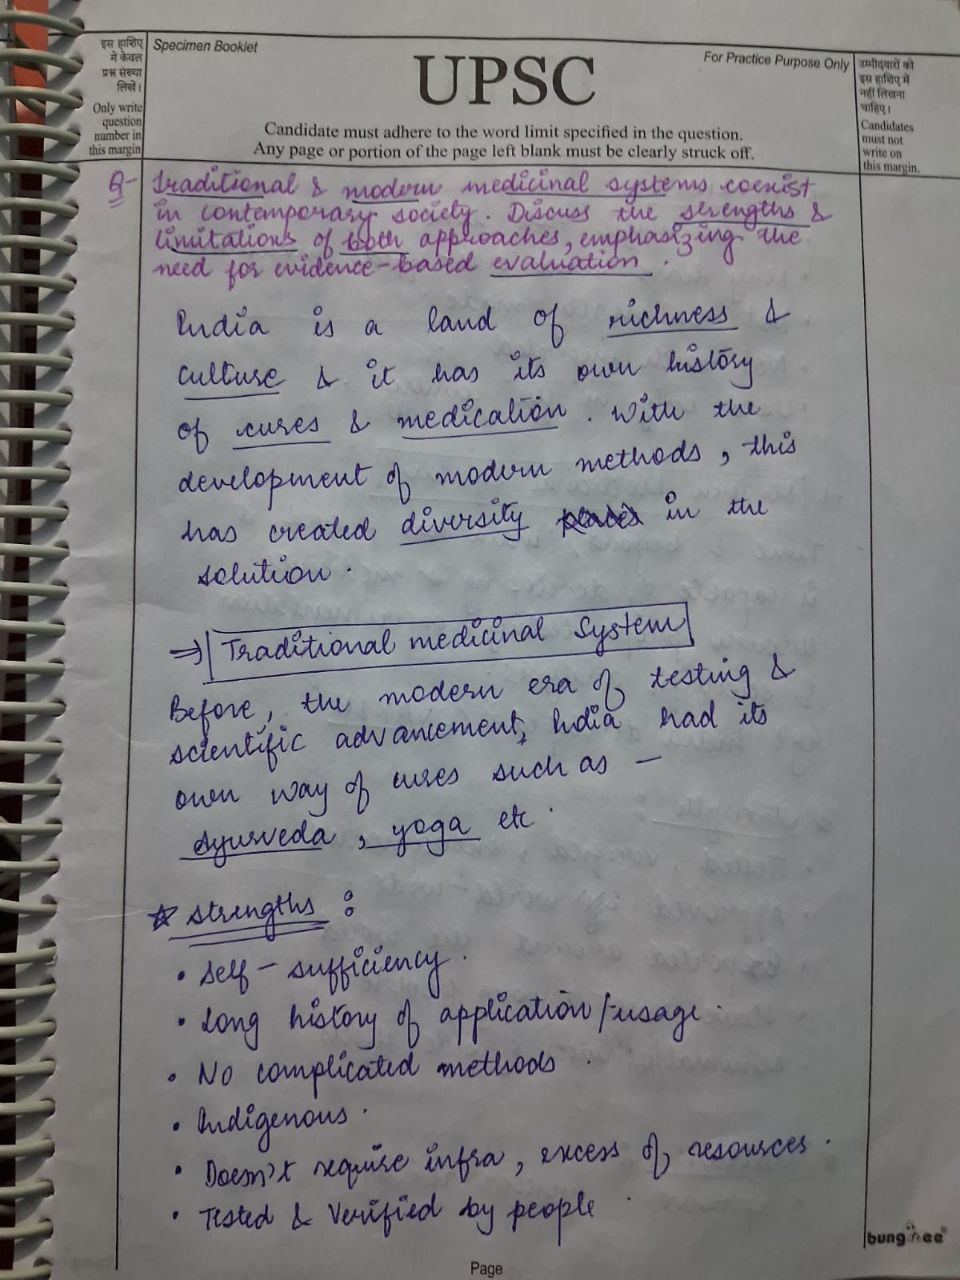 इस हाशिए
में केवल
प्रश्न संख्या
लिखें।
Only write
question
number in
this margin
Specimen Booklet
For Practice Purpose Only
UPSC
Candidate must adhere to the word limit specified in the question.
Any page or portion of the page left blank must be clearly struck off.
उम्मीदवारों को
इस हाशिए में
नहीं लिखना
चाहिए।
Candidates
must not
write on
this margin.
Q- Traditional & modern medicinal systems coexist
in contemporary society. Discuss the strengths &
limitations of both approaches, emphasizing the
need for evidence-based evaluation.
India is a land of richness &
culture & it has its own history
of cures & medication. With the
development of modern methods, this
has created diversity in the
solution.
⇒ Traditional medicinal System
Before, the modern era of testing &
scientific advancement, India had its
own way of cures such as —
Ayurveda, yoga etc.
☆ Strengths :
• Self-sufficiency.
• Long history of application/usage.
• No complicated methods.
• Indigenous.
• Doesn't require infra, excess of resources.
• Tested & Verified by people.
bunghee
Page